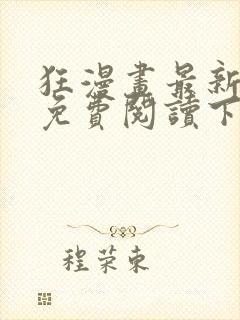 狂漫畫最新
免費閱讀下
程荣東